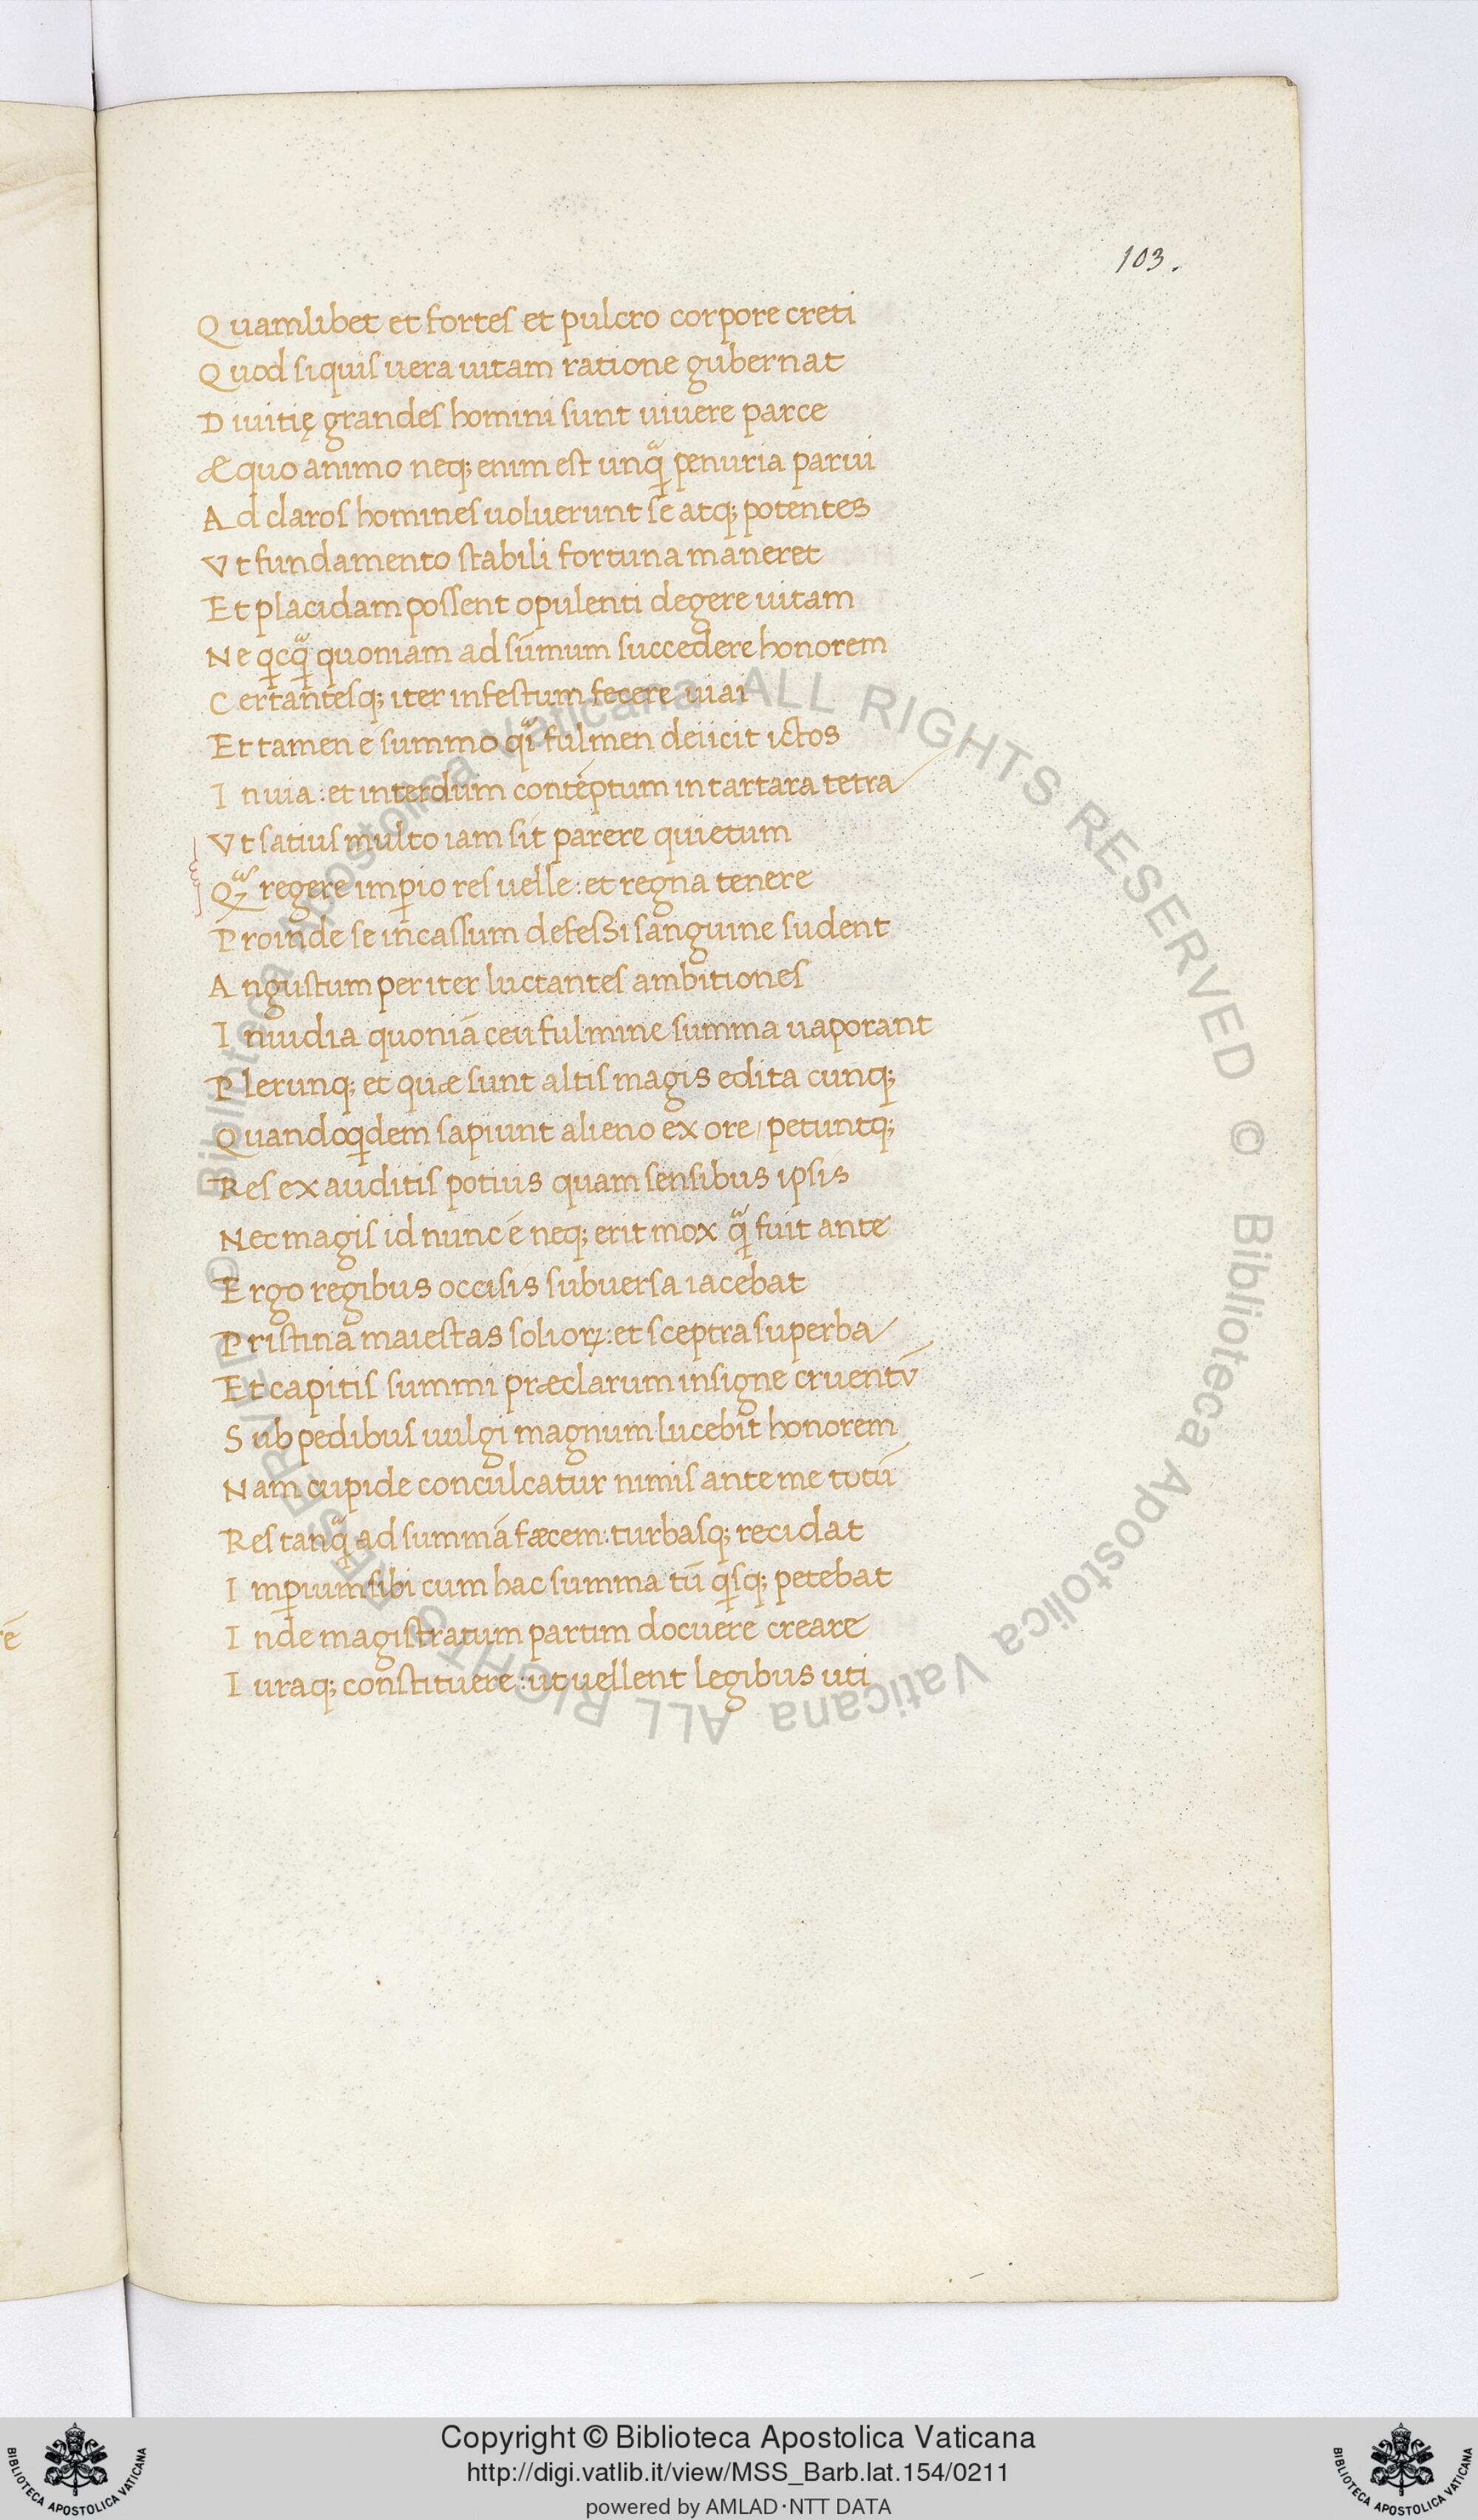 103.
Quamlibet et fortes et pulcro corpore creti
Quod siquis uera uitam ratione gubernat
Diuitię grandes homini sunt uiuere parce
Æquo animo neq; enim est unqᷓ penuria parui
Ad claros homines uoluerunt se atq; potentes
Vt fundamento stabili fortuna maneret
Et placidam possent opulenti degere uitam
Ne qcqᷓ quoniam ad sūmum succedere honorem
Certantesq; iter infestum fecere uiai
Et tamen é summo qᷓi fulmen deiicit ictos
Inuia: et interdum contēptum in tartara tetra
Vt satius multo iam sit parere quietum
Qᷓ regere imꝑio res uelle: et regna tenere
Proinde se incassum defessi sanguine sudent
Angustum per iter luctantes ambitiones
Inuidia quoniā ceu fulmine summa uaporant
Plerunq; et quæ sunt altis magis edita cunq;
Quandoqdem sapiunt alieno ex ore, petuntq;
Res ex auditis potius quam sensibus ipsis
Nec magis id nunc ē neq; erit mox qᷓ fuit ante
Ergo regibus occisis subuersa iacebat
Pristina maiestas solioꝝ: et sceptra superba
Et capitis summi præclarum insigne cruentū
Sub pedibus uulgi magnum lucebit honorem
Nam cupide conculcatur nimis ante me tutū
Res tanqᷓ ad summā fæcem: turbasq; recidat
Imꝑium sibi cum hac summa tū qsq; petebat
Inde magistratum partim docuere creare
Iuraq; constituere: ut uellent legibus uti
© Biblioteca Apostolica Vaticana ALL RIGHTS RESERVED © Biblioteca Apostolica Vaticana ALL RIGHTS RESERVED
Copyright © Biblioteca Apostolica Vaticana
http://digi.vatlib.it/view/MSS_Barb.lat.154/0211
powered by AMLAD·NTT DATA
BIBLIOTECA APOSTOLICA VATICANA
BIBLIOTECA APOSTOLICA VATICANA